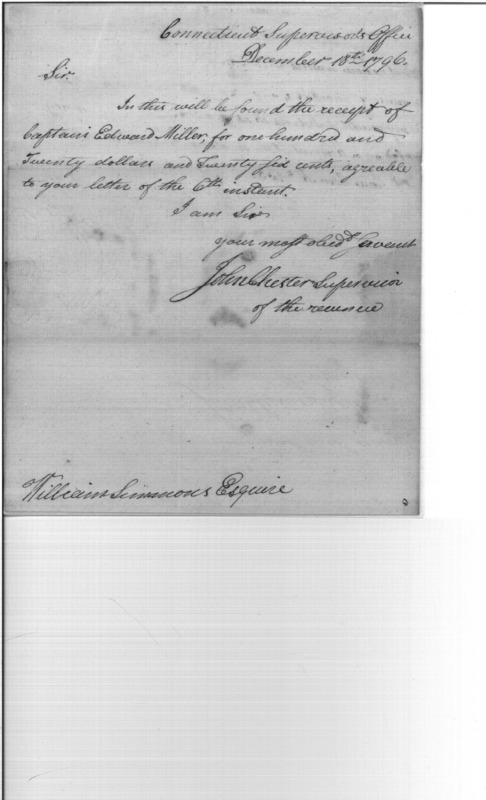 Connecticut Supervisors Office
December 18th. 1796.
Sir.
In this will be found the receipt of
Captain Edward Miller, for one hundred and
Twenty dollars and Twenty six cents, agreable
to your letter of the 6th instant.
I am Sir
your most obedt. Servant
John Chester Supervisor
of the revenue
William Simmons Esquire